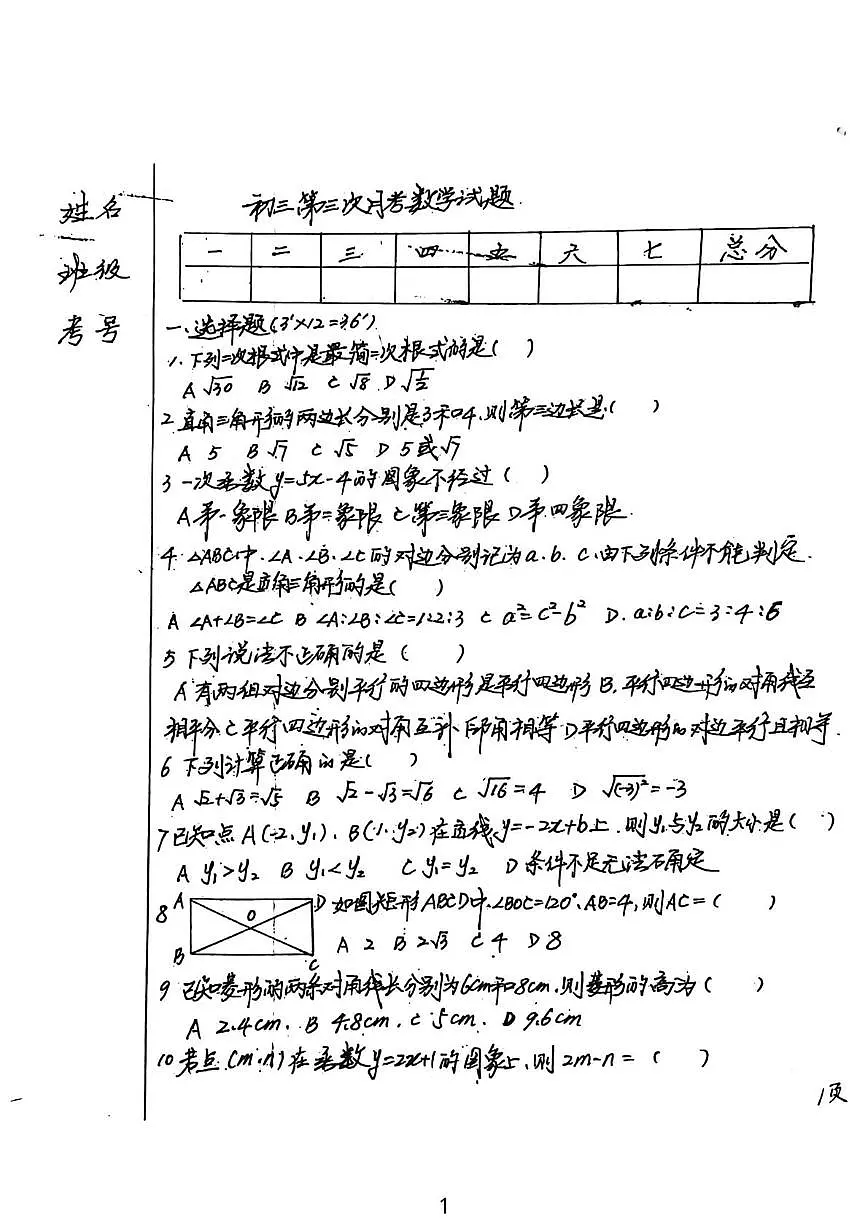 姓名
班级
考号
初三第三次月考数学试题
一 二 三 四 五 六 七 总分
一、选择题(3'×12=36')
1、下列二次根式中是最简二次根式的是( )
A √30 B √12 C √8 D √½
2、直角三角形的两边长分别是3和4,则第三边长是( )
A 5 B √7 C √5 D 5或√7
3 一次函数y=5x-4的图象不经过( )
A第一象限 B第二象限 C第三象限 D第四象限
4、△ABC中,∠A、∠B、∠C的对边分别记为a、b、c,由下列条件不能判定
△ABC是直角三角形的是( )
A ∠A+∠B=∠C B ∠A:∠B:∠C=1:2:3 C a²=c²-b² D. a:b:c=3:4:6
5 下列说法不正确的是( )
A 有两组对边分别平行的四边形是平行四边形 B.平行四边形的对角线互
相平分 C 平行四边形的对角互补,邻角相等 D平行四边形的对边平行且相等
6 下列计算正确的是( )
A √2+√3=√5 B √2-√3=√6 C √16=4 D √(-3)²=-3
7 已知点A(-2,y₁)、B(1,y₂)在直线y=-2x+b上,则y₁与y₂的大小是( )
A y₁>y₂ B y₁<y₂ C y₁=y₂ D 条件不足无法确定
8 A D O B C 如图矩形ABCD中,∠BOC=120°,AB=4,则AC=( )
A 2 B 2√3 C 4 D 8
9 已知菱形的两条对角线长分别为6cm和8cm,则菱形的高为( )
A 2.4cm. B 4.8cm. C 5cm. D 9.6cm
10 若点(m,n)在函数y=2x+1的图象上,则2m-n=( )
1页
1